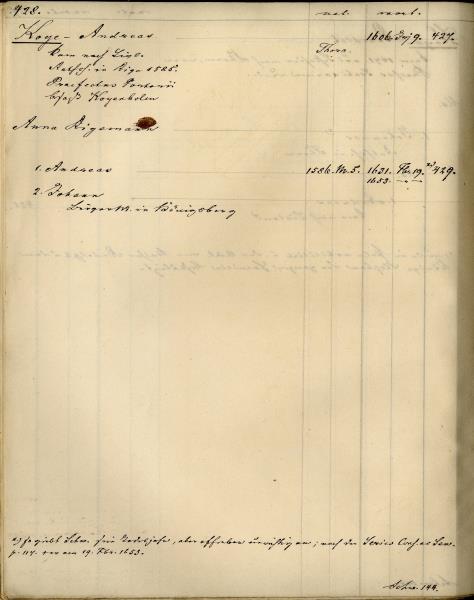 428.
nat. mort.
Koye - Andreas 1606. Juj 9. 427.
Kam nach Livl. Thorn.
Rathsh. in Riga 1585.
Praefectus Portorii
besaß Koyenholm
Anna Rigemann
1. Andreas 1586. Nr. 5. 1631. Fbr. 19. a) 429.
1653. — —
2. Johann
Bürger in Königsberg
a) so giebt Schw. sein Todesjahr, aber offenbar unrichtig an; nach der Series Cons. ac Sen.
p. 114. war am 19. Fbr. 1653.
Schw. 144.